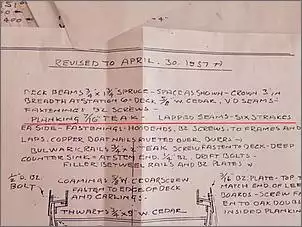 REVISED TO APRIL. 30. 1937
DECK BEAMS 3/4 x 1 3/4 SPRUCE - SPACE AS SHOWN - CROWN 3" IN
BREADTH AT STATION 6 - DECK 3/8" W. CEDAR, V.D SEAMS -
FASTENINGS BZ SCREWS -
PLANKING 7/16" TEAK - LAPPED SEAMS - SIX STRAKES
EA SIDE - FASTENINGS - HOOD ENDS, BZ SCREWS, TO FRAMES AND
LAPS, COPPER BOAT NAILS RIVETED OVER BURRS -
BULWARK RAILS TEAK SCREW FASTEN TO DECK - DEEP
COUNTER SINK - AT STEM END, 1/4 BZ. DRIFT BOLTS -
FILLER BETWEEN RAILS AND BZ PLATES
BZ
BOLT
COAMINGS 1/2" W. CEDAR SCREW
FASTEN TO EDGE OF DECK
AND CARLINGS.
THWARTS 3/4 x 9" W. CEDAR
3/16 BZ PLATE - TOP
MATCH END OF LE
BOARDS - SCREW F
EN TO OAK DOUBL
INSIDE PLANKIN